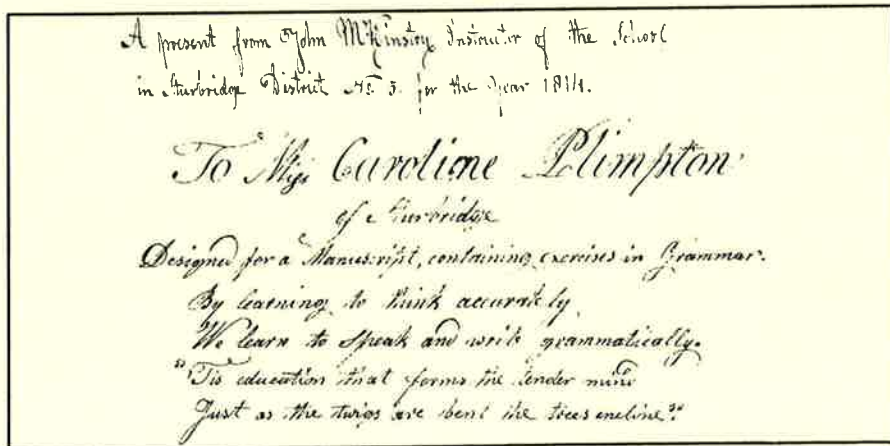 A present from John McKinstry Instructer of the School
in Sturbridge District No. 5 for the year 1814.
To Miss Caroline Plimpton
of Sturbridge
Designed for a Manuscript, containing exercises in Grammar.
By learning to think accurately
We learn to speak and write grammatically.
"Tis education that forms the tender mind
Just as the twigs are bent the trees encline"